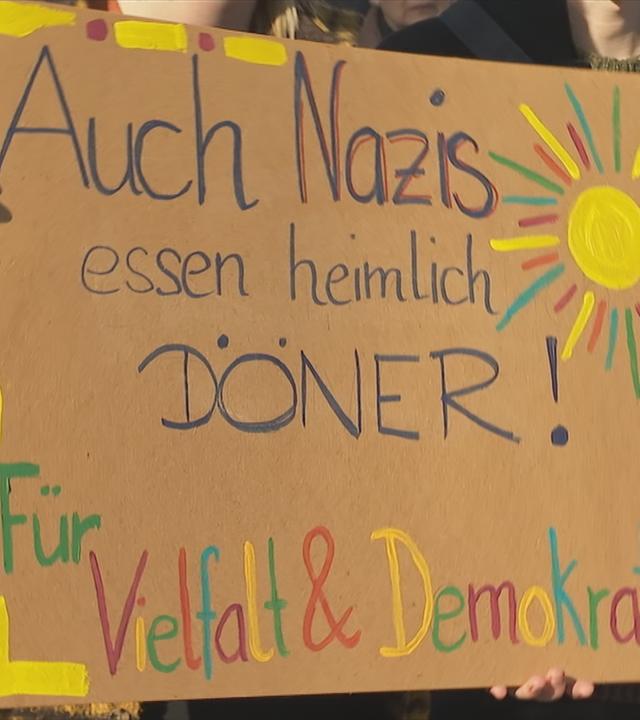 Auch Nazis
essen heimlich
DÖNER!
Für
Vielfalt & Demokra